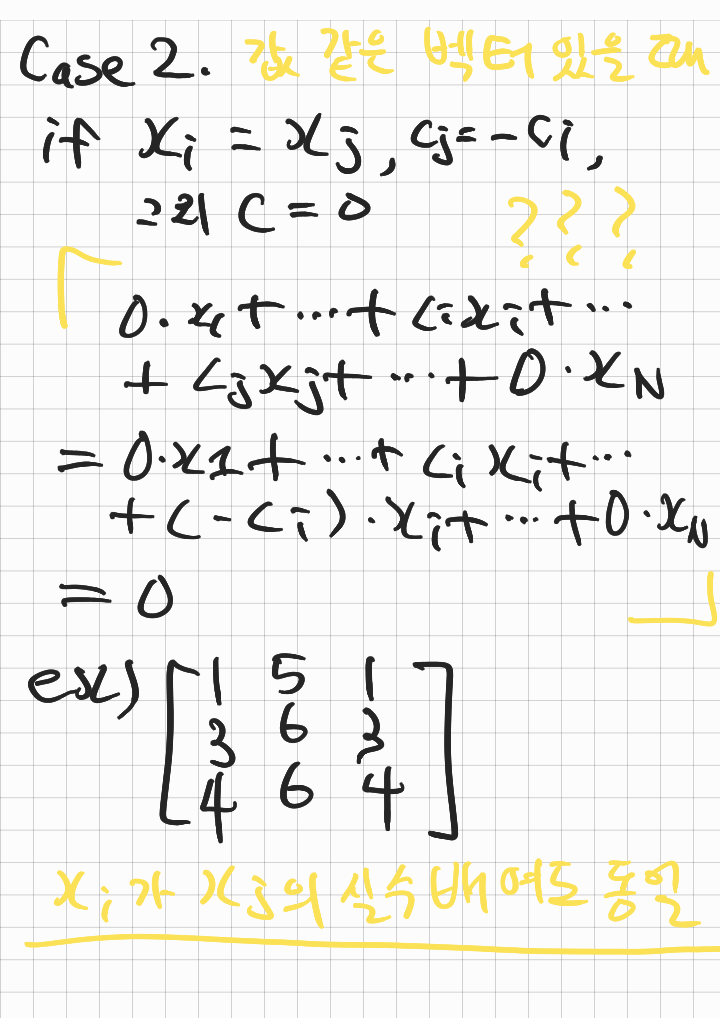 Case 2. 값 같은 벡터 있을 때
if xᵢ = xⱼ, cⱼ = -cᵢ,
그외 C = 0 ???
0·x₁+⋯+cᵢxᵢ+⋯
+cⱼxⱼ+⋯+0·x_N
=0·x1+⋯+cᵢxᵢ+⋯
+(-cᵢ)·xᵢ+⋯+0·x_N
=0
ex) [1 5 1
3 6 3
4 6 4]
xᵢ가 xⱼ의 실수배여도 동일